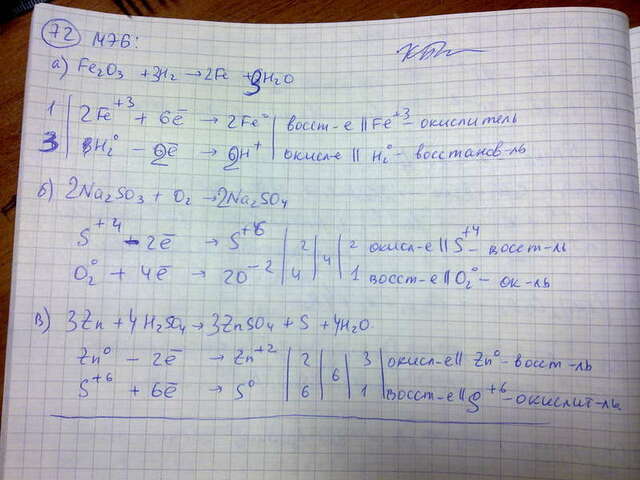 72 №76:
а) Fe2O3 + 3H2 → 2Fe + 3H2O
1 | 2Fe+3 + 6ē → 2Fe° | восст-е || Fe+3 - окислитель
3 | H2° - 2ē → 2H+ | окисл-е || H2° - восстанов-ль
б) 2Na2SO3 + O2 → 2Na2SO4
S+4 - 2ē → S+6 | 2 | 4 | 2 окисл-е || S+4 - восст-ль
O2° + 4ē → 2O-2 | 4 | 1 восст-е || O2° - ок-ль
в) 3Zn + 4H2SO4 → 3ZnSO4 + S + 4H2O
Zn° - 2ē → Zn+2 | 2 | 6 | 3 | окисл-е || Zn° - восст-ль
S+6 + 6ē → S° | 6 | 1 | восст-е || S+6 - окислит-ль